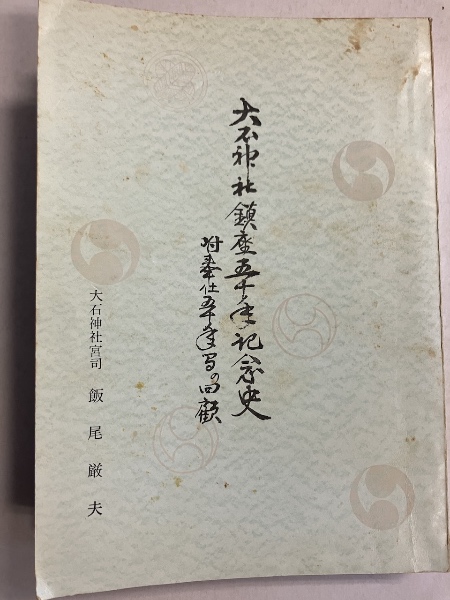 大石神社鎮座五十年記念史
附奉仕五十年間の回顧
大石神社宮司 飯尾厳夫